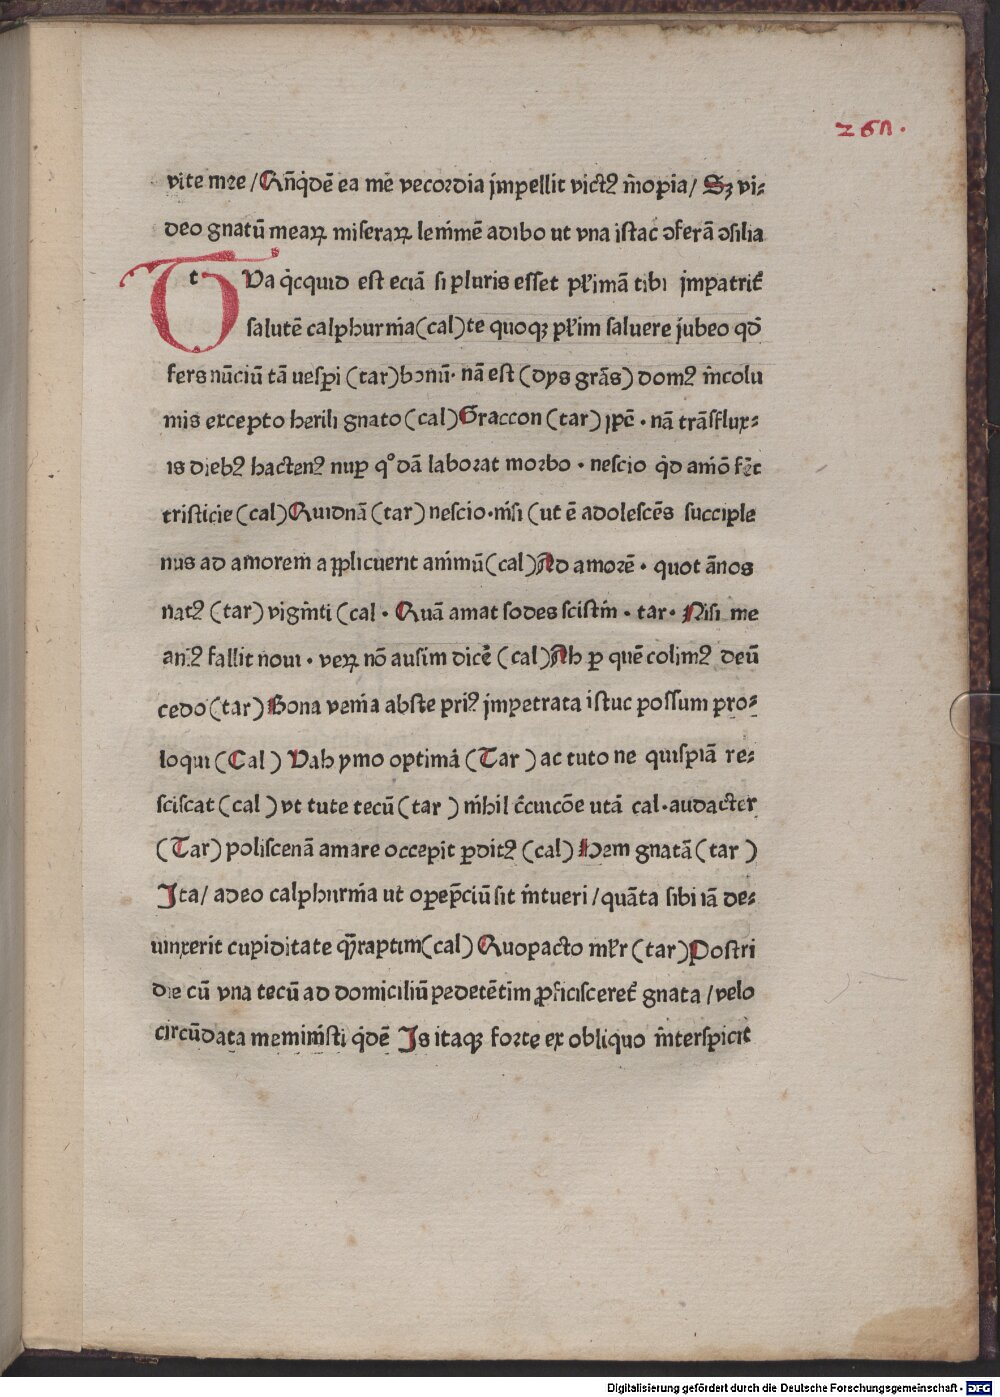 261.
vite mre / Qn̄q̇dē ea mē vecordia jmpellit victꝰ īnopia / Sꝫ vi⸗
deo gnatū meaꝝ miseraꝝ lenimē adibo ut vna istac ↄferā ↄsilia
t Va q̇cquid est eciā si pluris esset plimā tibi jmpatrit
salutē calphurnia (cal) te quoqꝫ plim saluere jubeo qđ
fers nūciū tā uesperi (tar) bonū · nā est (dys grās) domꝰ īncolu
mis excepto herili gnato (cal) Graccon (tar) jpē · nā trāsflux⸗
is diebꝰ hactenꝰ nuꝑ qᵒdā laborat morbo · nescio q̇d amō
tristicie (cal) Quidnā (tar) nescio · nisi (ut ē adolescēs succiple
nus ad amorem applicuerit animū (cal) Ad amorē · quot ānos
natꝰ (tar) viginti (cal · Quā amat sodes scistin · tar · Nisi me
anꝰ fallit noui · veꝝ nō ausim dicē (cal) Ah ꝑ quē colimꝰ deū
cedo (tar) Bona venia abste priꝰ jmpetrata istuc possum pro⸗
loqui (Cal) Vah ymo optima (Tar) ac tuto ne quispiā re⸗
sciscat (cal) vt tute tecū (tar) nihil c̄cuicōe utā cal · audacter
(Tar) poliscenā amare occepit ꝑditꝰ (cal) Hem gnatā (tar)
Ita / adeo calphurnia ut opep̄ciū sit īntueri / quāta sibi iā de⸗
uinxerit cupiditate q̄raptim (cal) Quopacto mlr (tar) Postri
die cū vna tecū ad domiciliū pedetētim ꝓficisceret gnata / velo
circūdata meministi q̇dē Is itaqꝫ forte ex obliquo īnterspicit
Digitalisierung gefördert durch die Deutsche Forschungsgemeinschaft - DFG